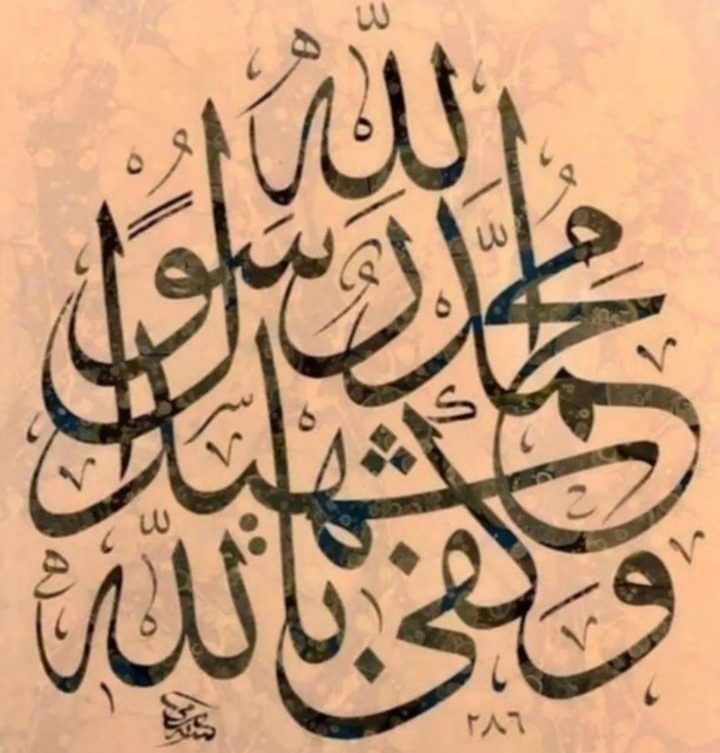 وَكَفَى بِاللَّهِ شَهِيدًا
مُحَمَّدٌ رَسُولُ اللَّهِ
٢٨٦